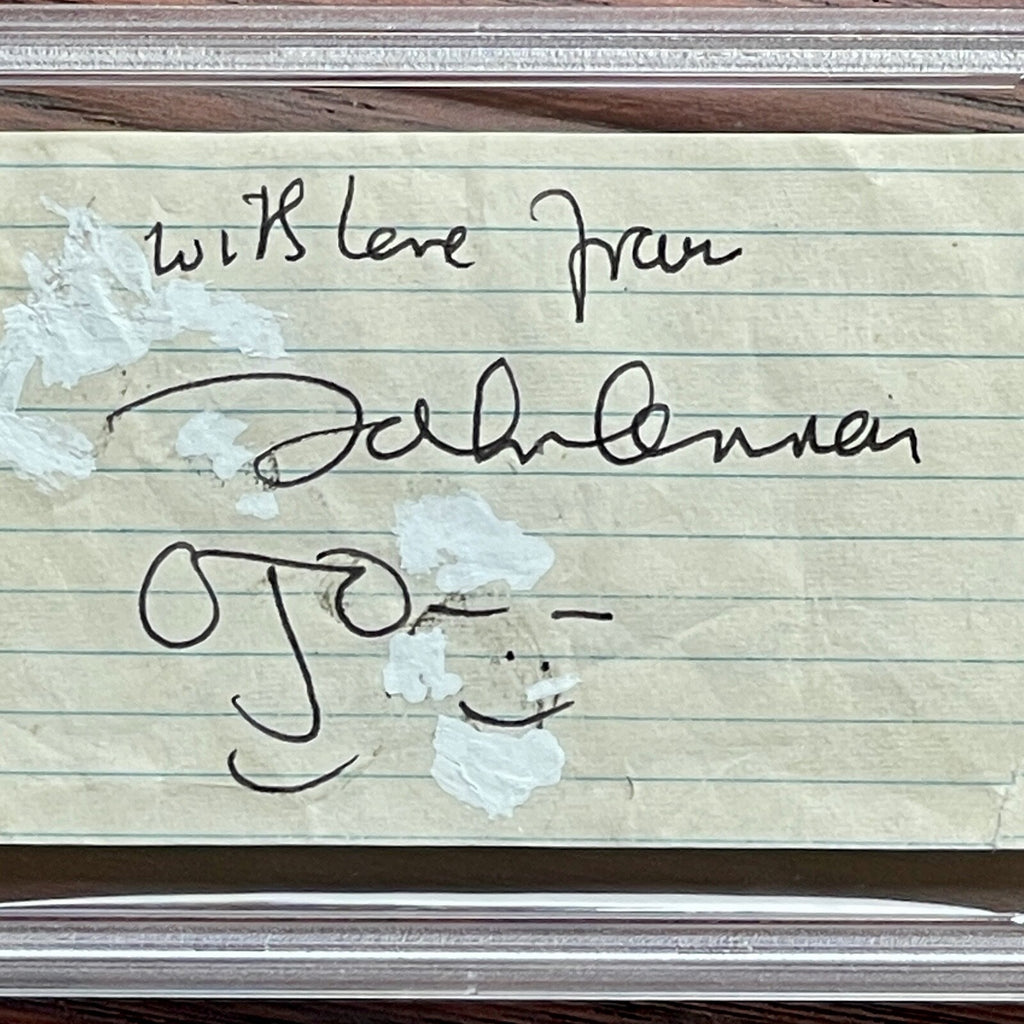 with love from
John Lennon